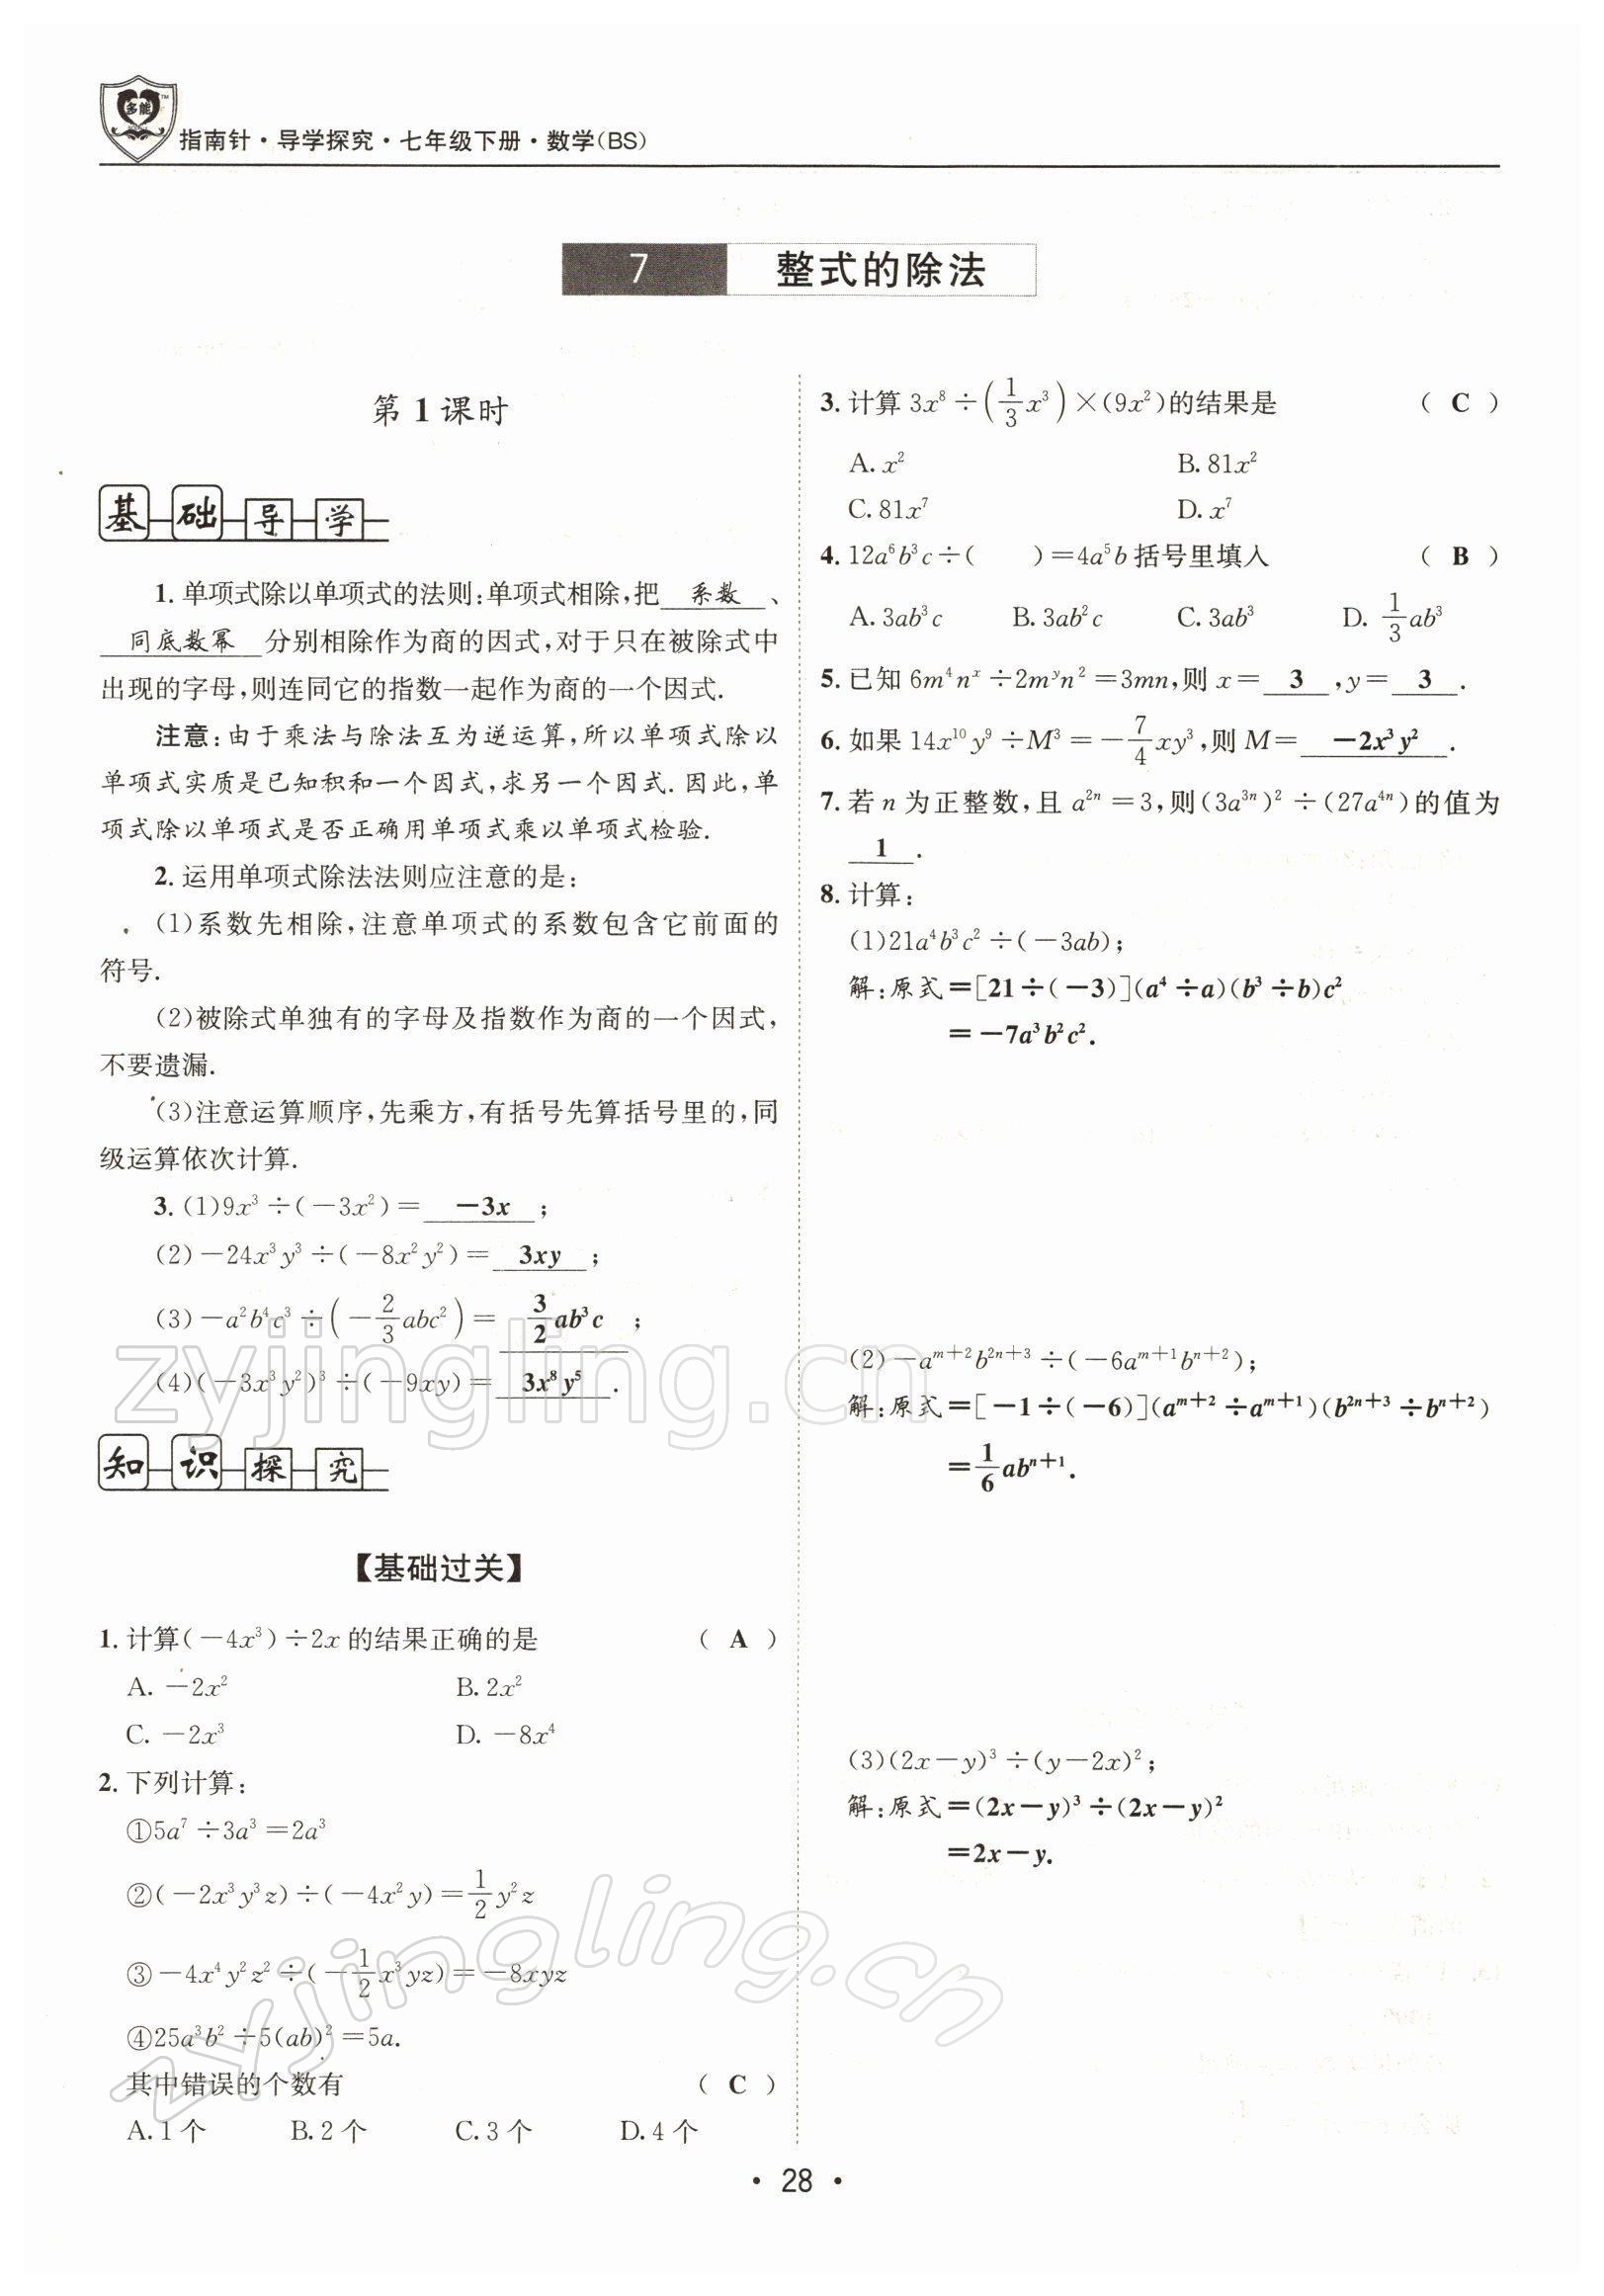 多能 TM
指南针·导学探究·七年级下册·数学(BS)
7 整式的除法
第1课时
基础导学
1. 单项式除以单项式的法则:单项式相除,把 系数 、
同底数幂 分别相除作为商的因式,对于只在被除式中
出现的字母,则连同它的指数一起作为商的一个因式.
注意:由于乘法与除法互为逆运算,所以单项式除以
单项式实质是已知积和一个因式,求另一个因式. 因此,单
项式除以单项式是否正确用单项式乘以单项式检验.
2. 运用单项式除法法则应注意的是:
(1)系数先相除,注意单项式的系数包含它前面的
符号.
(2)被除式单独有的字母及指数作为商的一个因式,
不要遗漏.
(3)注意运算顺序,先乘方,有括号先算括号里的,同
级运算依次计算.
3. (1)9x³÷(−3x²)= −3x ;
(2)−24x³y³÷(−8x²y²)= 3xy ;
(3)−a²b⁴c³÷(−2/3abc²)= 3/2ab³c ;
(4)(−3x³y²)³÷(−9xy)= 3x⁸y⁵ .
知识探究
【基础过关】
1. 计算(−4x³)÷2x的结果正确的是 ( A )
A. −2x² B. 2x²
C. −2x³ D. −8x⁴
2. 下列计算:
①5a⁷÷3a³=2a³
②(−2x³y³z)÷(−4x²y)=1/2y²z
③−4x⁴y²z²÷(−1/2x³yz)=−8xyz
④25a³b²÷5(ab)²=5a.
其中错误的个数有 ( C )
A. 1个 B. 2个 C. 3个 D. 4个
3. 计算 3x⁸÷(1/3x³)×(9x²)的结果是 ( C )
A. x² B. 81x²
C. 81x⁷ D. x⁷
4. 12a⁶b³c÷( )=4a⁵b括号里填入 ( B )
A. 3ab³c B. 3ab²c C. 3ab³ D. 1/3ab³
5. 已知 6m⁴nˣ÷2mʸn²=3mn,则 x= 3 ,y= 3 .
6. 如果 14x¹⁰y⁹÷M³=−7/4xy³,则 M= −2x³y² .
7. 若 n 为正整数,且 a²ⁿ=3,则(3a³ⁿ)²÷(27a⁴ⁿ)的值为
1 .
8. 计算:
(1)21a⁴b³c²÷(−3ab);
解:原式=[21÷(−3)](a⁴÷a)(b³÷b)c²
=−7a³b²c².
(2)−aᵐ⁺²b²ⁿ⁺³÷(−6aᵐ⁺¹bⁿ⁺²);
解:原式=[−1÷(−6)](aᵐ⁺²÷aᵐ⁺¹)(b²ⁿ⁺³÷bⁿ⁺²)
=1/6abⁿ⁺¹.
(3)(2x−y)³÷(y−2x)²;
解:原式=(2x−y)³÷(2x−y)²
=2x−y.
zyjingling.cn
zyjingling.cn
·28·